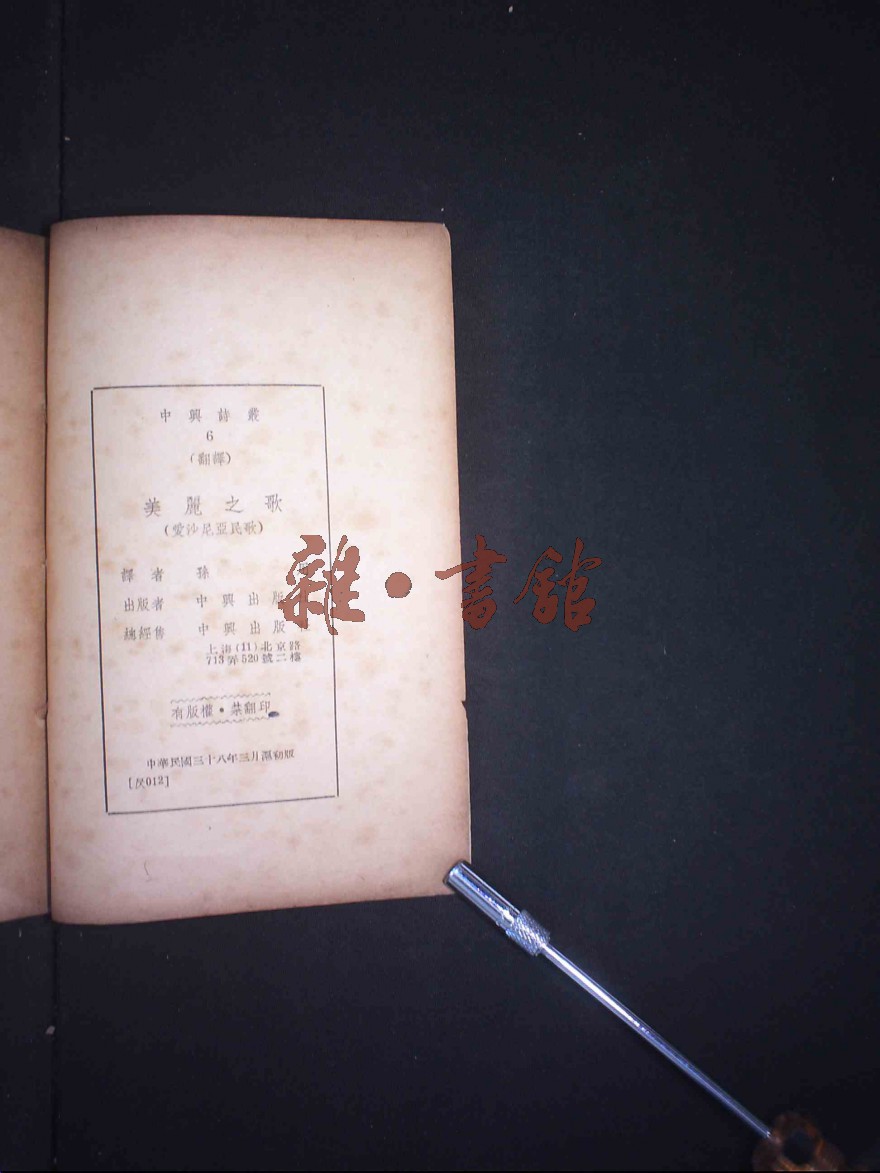 中興詩叢
6
(翻譯)
美麗之歌
(愛沙尼亞民歌)
譯者 孫
出版者 中興出版
總經售 中興出版
上海(11)北京路
713弄520號二樓
有版權·禁翻印
中華民國三十八年三月滬初版
012]
雜·書館